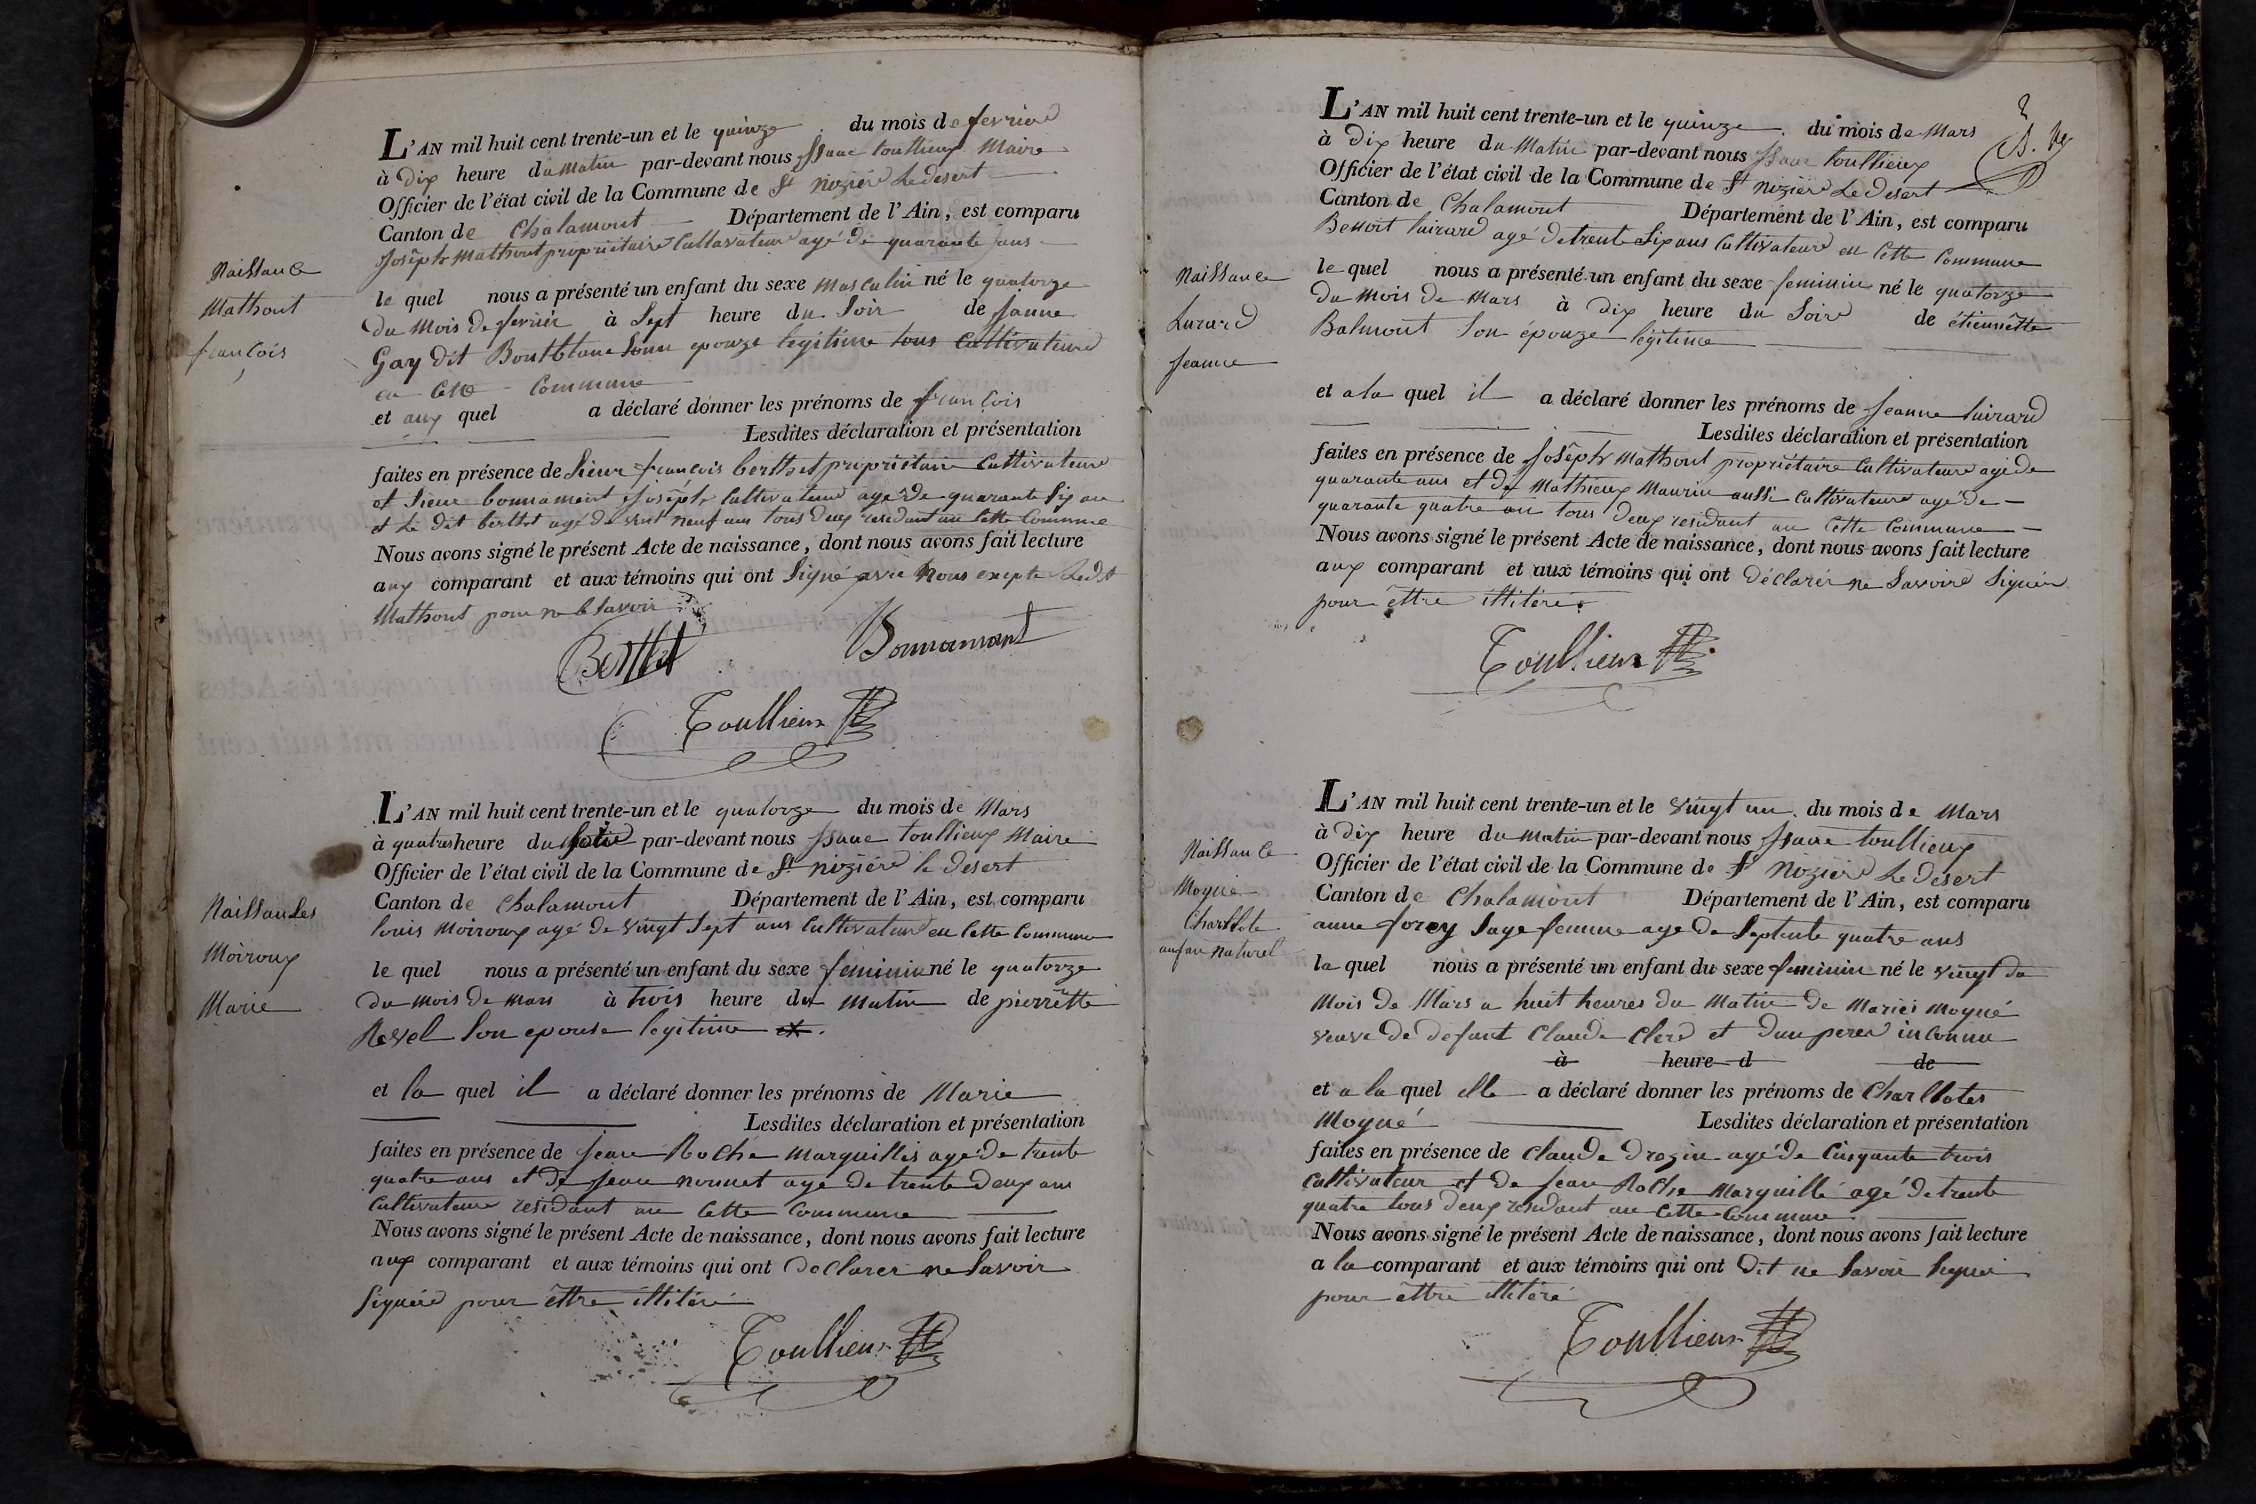 Naissance
Mathout
francois
L'AN mil huit cent trente-un et le quinze du mois de fevrier
à dix heure du Matin par-devant nous Isaac toullieux Maire
Officier de l'état civil de la Commune de St nizier Le desert
Canton de Chalamont Département de l'Ain, est comparu
Joseph Mathout propriétaire Cultavateur agé de quarante ans
le quel nous a présenté un enfant du sexe masculin né le quatorze
du mois de fevrier à Sept heure du Soir de Janne
Gay dit Bontblanc Sonn epouze legitime tous Cultivateurs
en Cette Commune
et aux quel a déclaré donner les prénoms de francois
Lesdites déclaration et présentation
faites en présence de Sieur francois berthet propriétaire Cultivateur
et Sieur bonnament Joseph Cultivateur agé de quarante Six an
et Le dit berthet agé de vent neuf ans tous deux residant en Cette Commune
Nous avons signé le présent Acte de naissance, dont nous avons fait lecture
aux comparant et aux témoins qui ont Signé avec Nous exepte Ledit
Mathout pour ne le Savoir
Berthet Bonnamant
Toullieux
Naissances
Moiroux
Marie
L'AN mil huit cent trente-un et le quatorze du mois de Mars
à quatre heure du Soir par-devant nous Isaac toullieux Maire
Officier de l'état civil de la Commune de St nizier le desert
Canton de Chalamont Département de l'Ain, est comparu
louis Moiroux agé de vingt Sept ans Cultivateur en Cette Commune
le quel nous a présenté un enfant du sexe feminin né le quatorze
du mois de mars à trois heure du matin de pierrette
Revel Son epouse legitime
et la quel il a déclaré donner les prénoms de Marie
Lesdites déclaration et présentation
faites en présence de Jean Roche Marguillis agé de trente
quatre ans et de Jean nonnet age de trente deux ans
Cultivateur residant en Cette Commune
Nous avons signé le présent Acte de naissance, dont nous avons fait lecture
aux comparant et aux témoins qui ont declarer ne Savoir
Signer pour êttre illitéré
Toullieux
Naissance
Lurard
Jeanne
L'AN mil huit cent trente-un et le quinze du mois de Mars
à Dix heure du Matin par-devant nous Isaac toullieux
Officier de l'état civil de la Commune de St nizier Le desert
Canton de Chalamont Département de l'Ain, est comparu
Benoit luirard agé de trente Six ans Cultivateur en Cette Commune
le quel nous a présenté un enfant du sexe feminin né le quatorze
Du mois de Mars à dix heure du Soir de étiennette
Balmont Son épouze légitime
et a la quel il a déclaré donner les prénoms de Jeanne luirard
Lesdites déclaration et présentation
faites en présence de Joseph Mathout propriétaire Cultivateur agé de
quarante ans et de Mathieux Maurin aussi Cultivateur agé de
quarante quatre an tous deux residant en Cette Commune
Nous avons signé le présent Acte de naissance, dont nous avons fait lecture
aux comparant et aux témoins qui ont déclarér ne Savoir Signér
pour êttre illitéré
Toullieux
Naissance
Moyne
Charllote
anfan naturel
L'AN mil huit cent trente-un et le vingt un du mois de Mars
à Dix heure du matin par-devant nous Isaac toullieux
Officier de l'état civil de la Commune de St Nizier Le desert
Canton de Chalamont Département de l'Ain, est comparu
anne forey Sage femme age de Septente quatre ans
la quel nous a présenté un enfant du sexe feminin né le vingt du
Mois de Mars a huit heures du Matin de Mariei Moyné
veuve de defunt Claude Clerd et dun perer inconnu
à heure d de
et a la quel elle a déclaré donner les prénoms de Charllotes
Moyné Lesdites déclaration et présentation
faites en présence de Claude Drogin agé de Cinquante trois
Cultivateur et de Jean Roche Marguillé agé de trente
quatre tous deux residant en Cette Commune
Nous avons signé le présent Acte de naissance, dont nous avons fait lecture
a la comparant et aux témoins qui ont Dit ne Savoir Signer
pour ettre illitéré
Toullieux